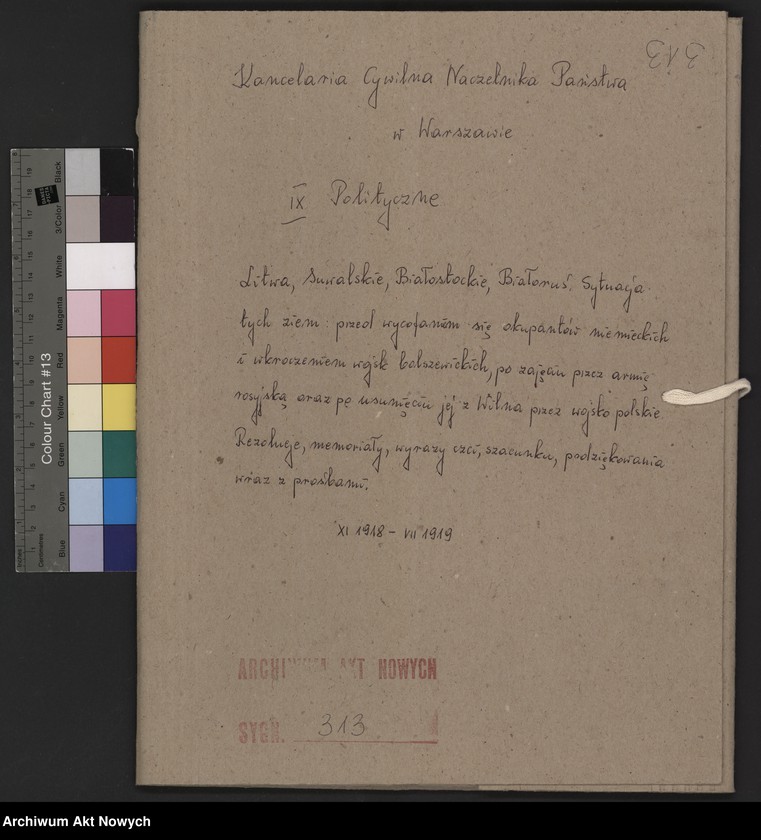 313
Kancelaria Cywilna Naczelnika Państwa
w Warszawie
IX Polityczne
Litwa, Suwalskie, Białostockie, Białoruś. Sytuacja
tych ziem: przed wycofaniem się okupantów niemieckich
i wkroczeniem wojsk bolszewickich, po zajęciu przez armię
rosyjską oraz po usunięciu jej z Wilna przez wojsko polskie.
Rezolucje, memoriały, wyrazy czci, szacunku, podziękowania
wraz z prośbami.
XI 1918 - VII 1919
ARCHIWUM AKT NOWYCH
SYGN. 313
Colour Chart #13
Black
3/Color
White
Magenta
Red
Yellow
Green
Cyan
Blue
Centimetres
Inches
Archiwum Akt Nowych